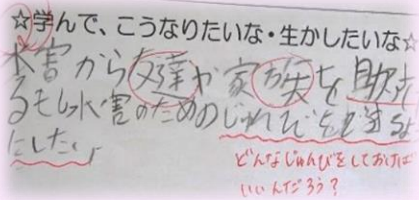 ☆学んで、こうなりたいな・生かしたいな☆
水害から友達か家族を助ける
るもし水害のためのじゅんびをできるよ
にしたい
どんなじゅんびをしておけば
いいんだろう？